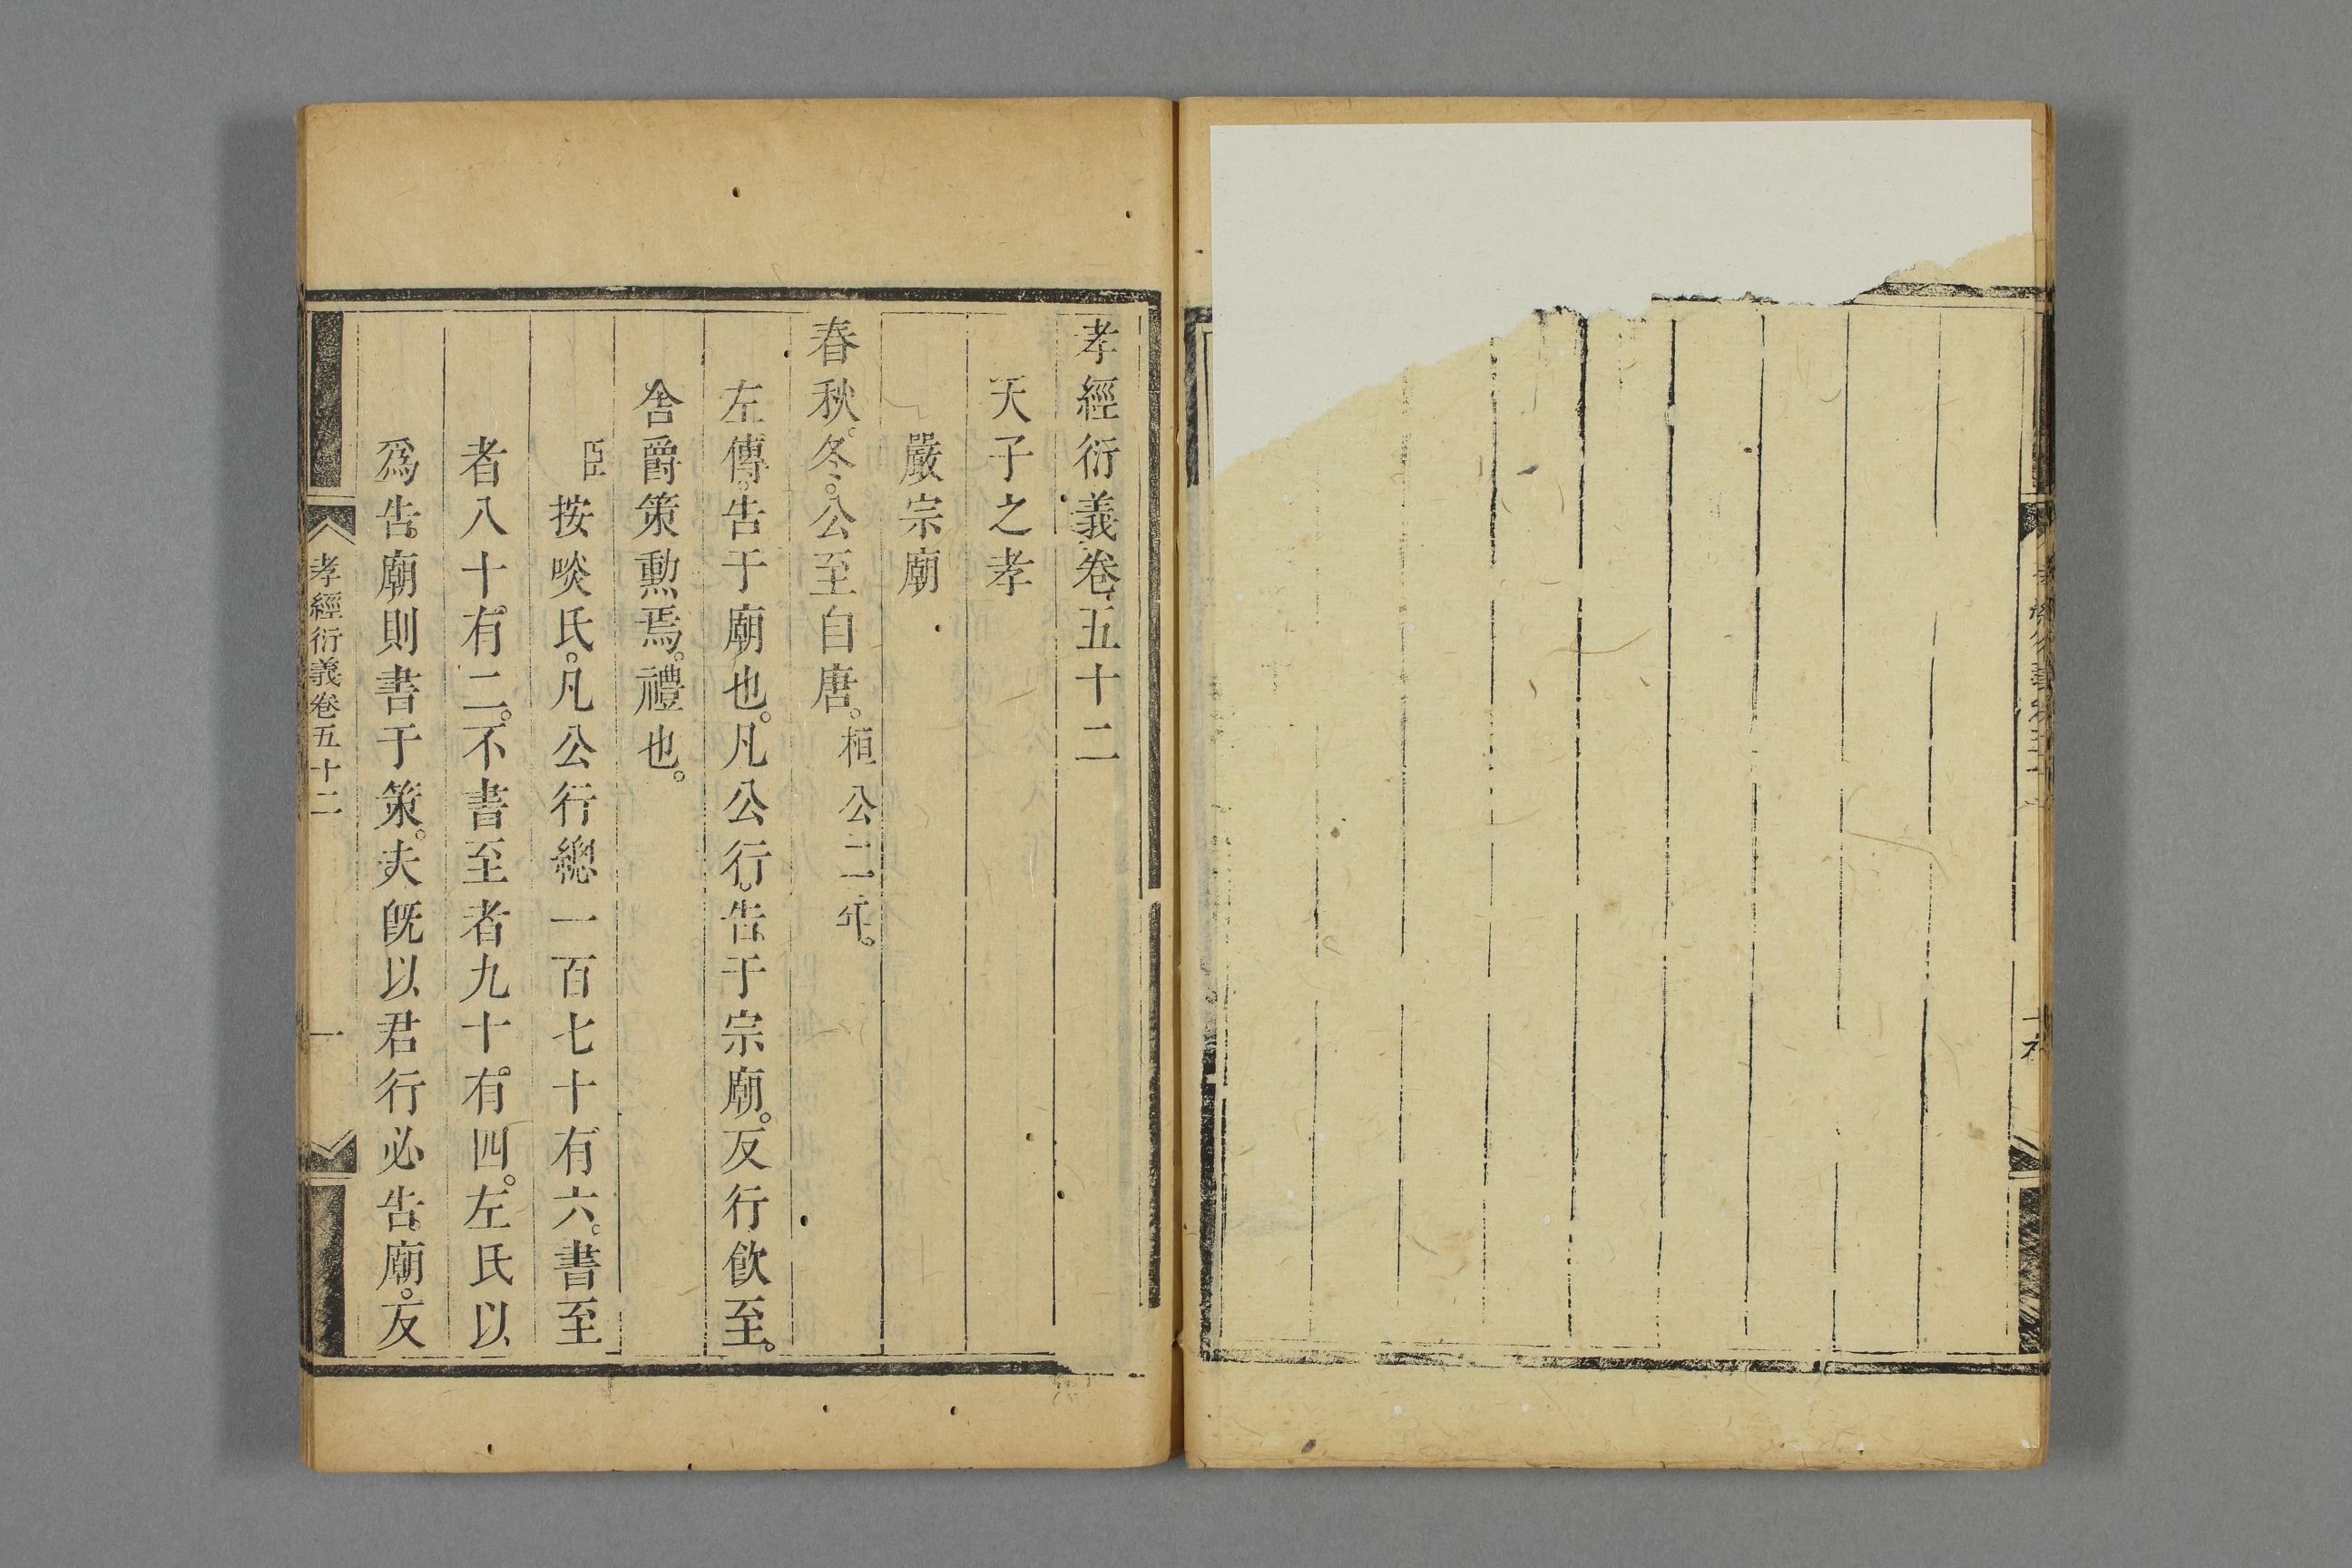 孝經衍義卷五十二
天子之孝
嚴宗廟
春秋。冬。公至自唐。桓公二年。
左傳。告于廟也。凡公行。告于宗廟。反行飲至。
舍爵策勳焉。禮也。
臣按啖氏。凡公行總一百七十有六。書至
者八十有二。不書至者九十有四。左氏以
爲告廟則書于策。夫旣以君行必告廟。反
孝經衍義卷五十二 一